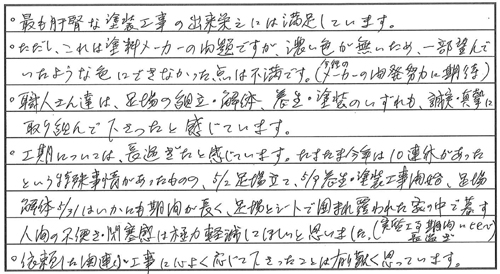 ・最も肝腎な塗装工事の出来栄えには満足しています。
・ただし、これは塗料メーカーの問題ですが、濃い色が無いため、一部望んで
いたような色にできなかった点は不満です。(今後のメーカーの開発努力に期待)
・職人さん達は、足場の組立・解体、養生・塗装のいずれも、誠実・真摯に
取り組んで下さったと感じています。
・工期については、長過ぎたと感じています。たまたま今年は10連休があった
という特殊事情があったものの、5/2足場立て、5/9養生・塗装工事開始、足場
解体5/31はいかにも期間が長く、足場とシートで囲まれ覆われた家の中で暮す
人間の不便さ・閉塞感は極力軽減してほしいと思いました。(実際工事期間に比べて長過ぎ)
・依頼した関連小工事に心よく応じて下さったことは有難く思っています。